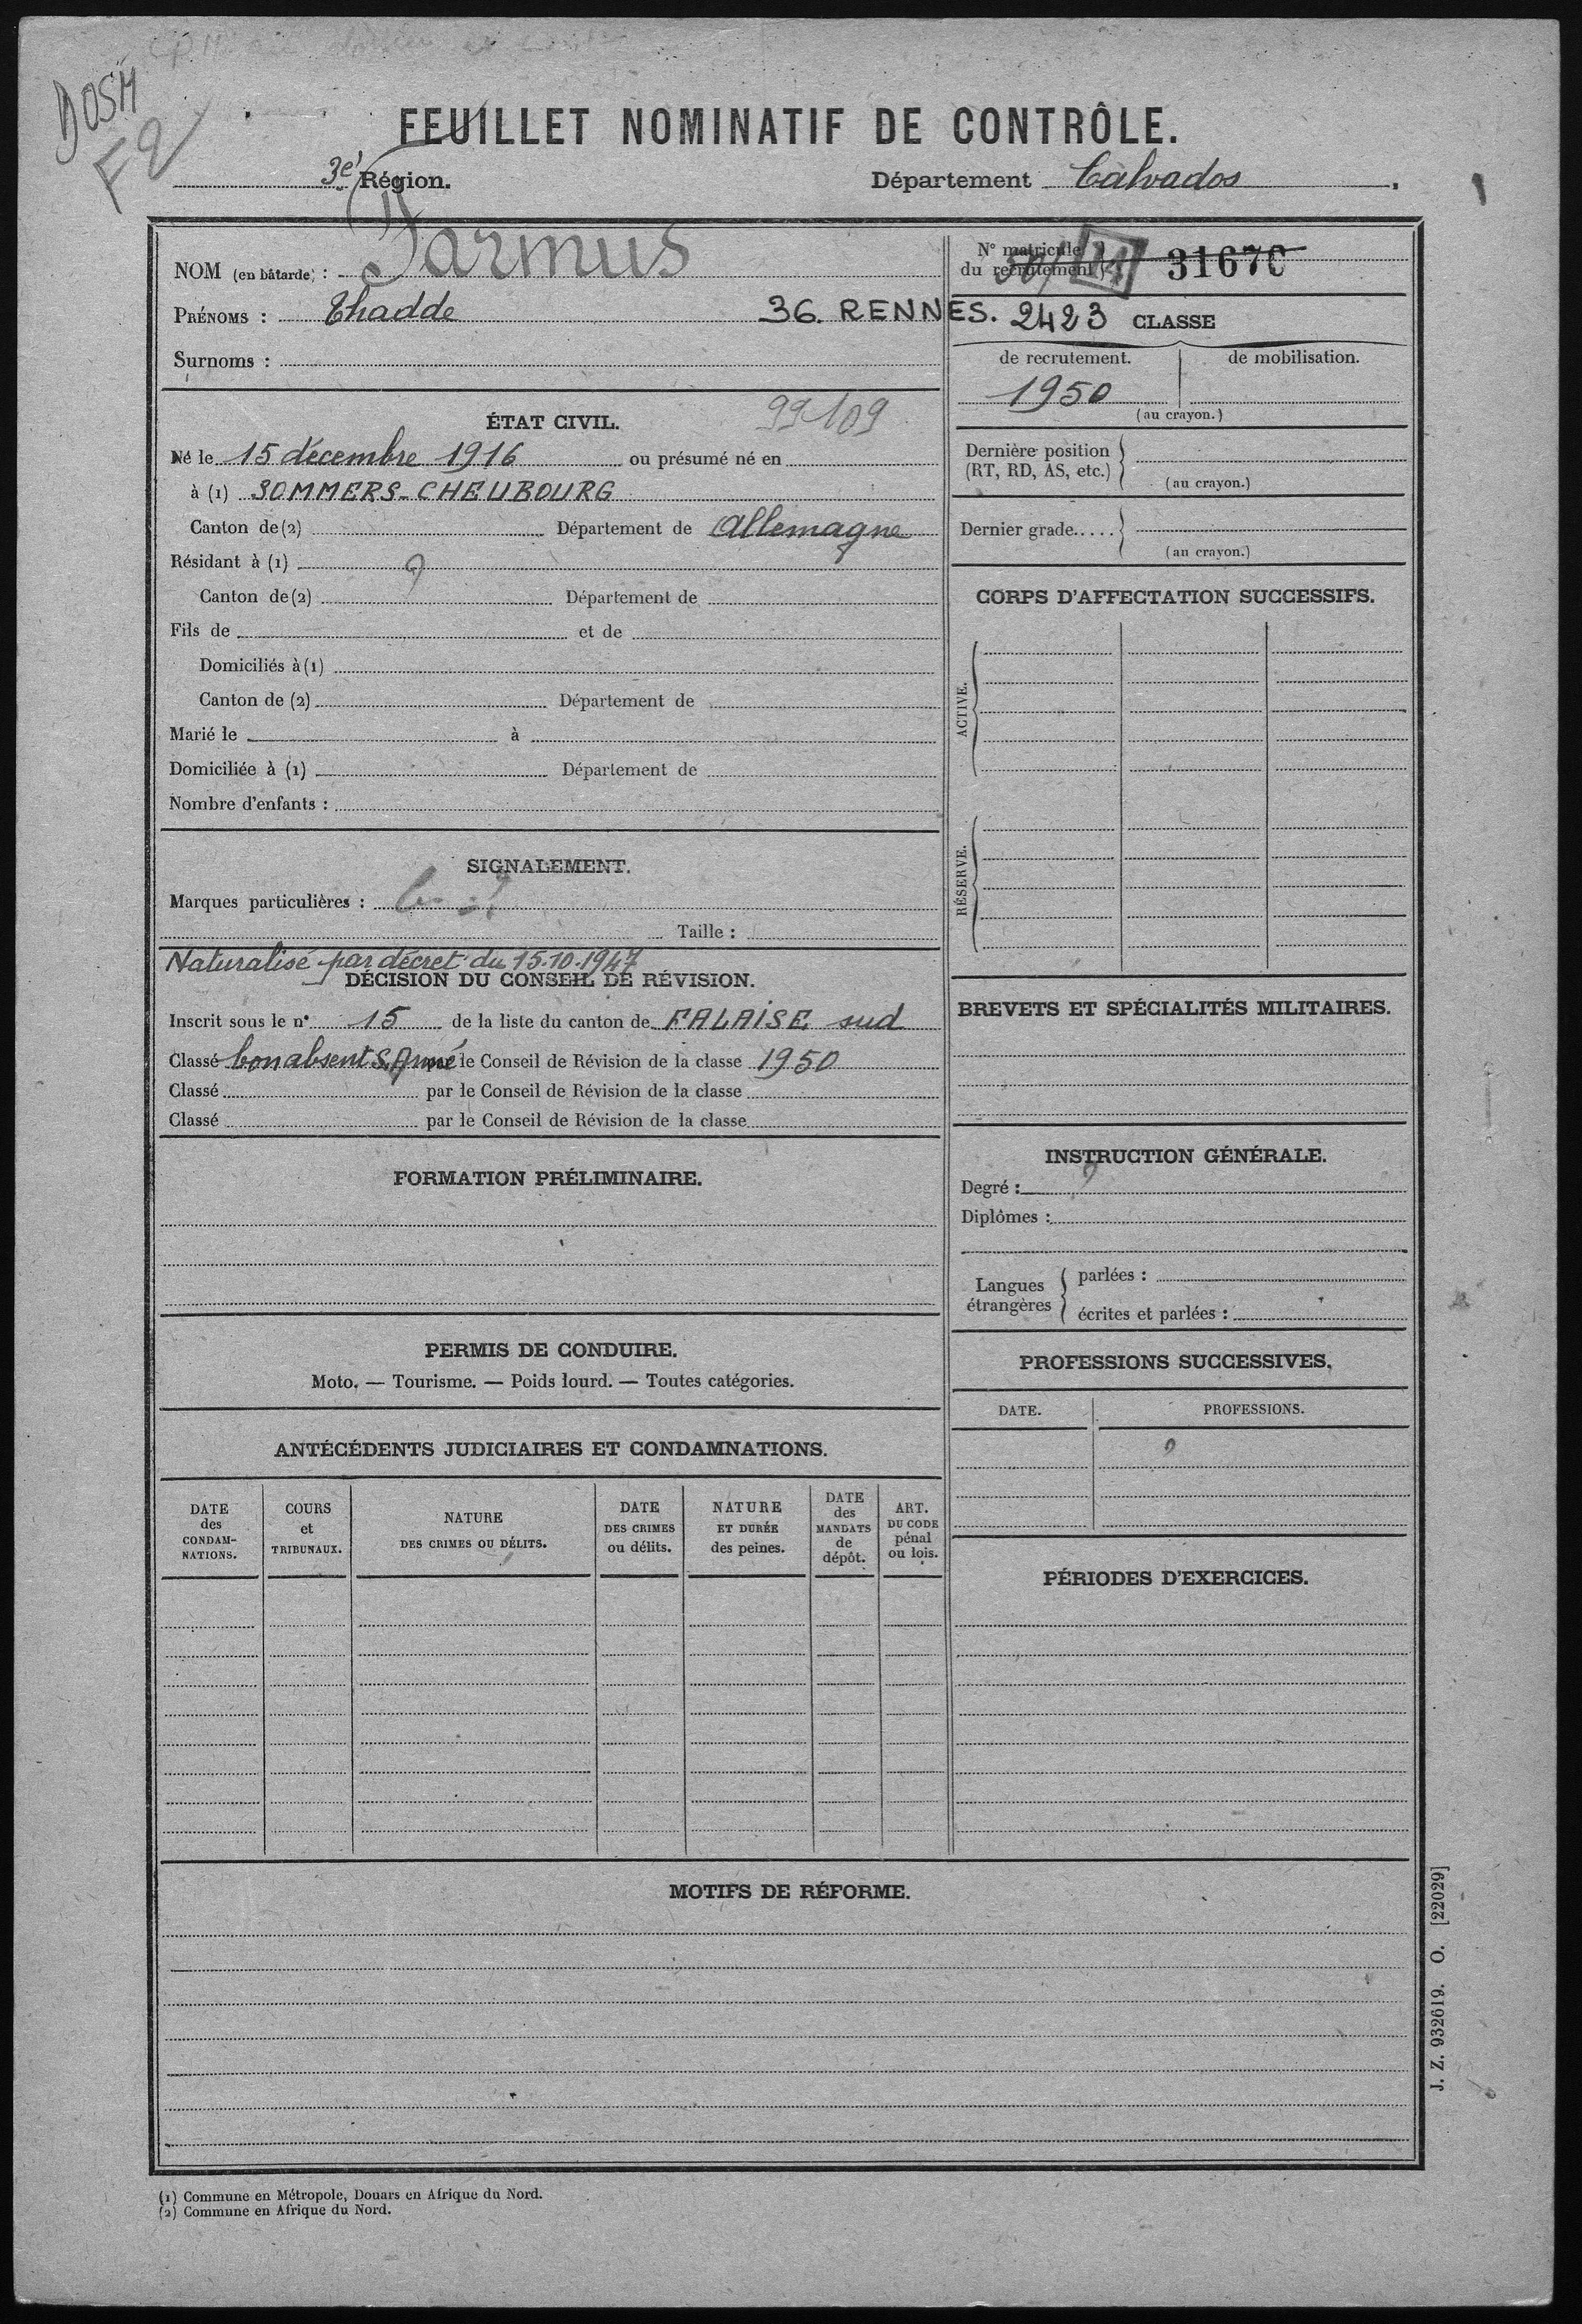 DOSM
F2
FEUILLET NOMINATIF DE CONTRÔLE.
3e Région.
Département Calvados.
NOM (en bâtarde) : Parmus
PRÉNOMS : Thadde
Surnoms :
N° matricule du recrutement 3167C
36. RENNES. 2423 CLASSE
de recrutement. de mobilisation.
1950
(au crayon.)
ÉTAT CIVIL. 99109
Né le 15 décembre 1916 ou présumé né en
à (1) SOMMERS-CHEUBOURG
Canton de (2) Département de Allemagne
Résidant à (1) ?
Canton de (2) Département de
Fils de et de
Domiciliés à (1)
Canton de (2) Département de
Marié le à
Domiciliée à (1) Département de
Nombre d'enfants :
Dernière position (RT, RD, AS, etc.)
(au crayon.)
Dernier grade.....
(au crayon.)
CORPS D'AFFECTATION SUCCESSIFS.
ACTIVE.
RÉSERVE.
SIGNALEMENT.
Marques particulières :
Taille :
Naturalisé par décret du 15.10.1947
DÉCISION DU CONSEIL DE RÉVISION.
Inscrit sous le n° 15 de la liste du canton de FALAISE sud
Classé bon absent S. Armé par le Conseil de Révision de la classe 1950
Classé par le Conseil de Révision de la classe
Classé par le Conseil de Révision de la classe
BREVETS ET SPÉCIALITÉS MILITAIRES.
FORMATION PRÉLIMINAIRE.
INSTRUCTION GÉNÉRALE.
Degré : ?
Diplômes :
Langues étrangères
parlées :
écrites et parlées :
PERMIS DE CONDUIRE.
Moto. — Tourisme. — Poids lourd. — Toutes catégories.
PROFESSIONS SUCCESSIVES.
DATE. PROFESSIONS.
?
ANTÉCÉDENTS JUDICIAIRES ET CONDAMNATIONS.
DATE des CONDAMNATIONS.
COURS et TRIBUNAUX.
NATURE DES CRIMES OU DÉLITS.
DATE DES CRIMES ou délits.
NATURE ET DURÉE des peines.
DATE des MANDATS de dépôt.
ART. DU CODE pénal ou lois.
PÉRIODES D'EXERCICES.
MOTIFS DE RÉFORME.
J. Z. 932619. O. [22029]
(1) Commune en Métropole, Douars en Afrique du Nord.
(2) Commune en Afrique du Nord.